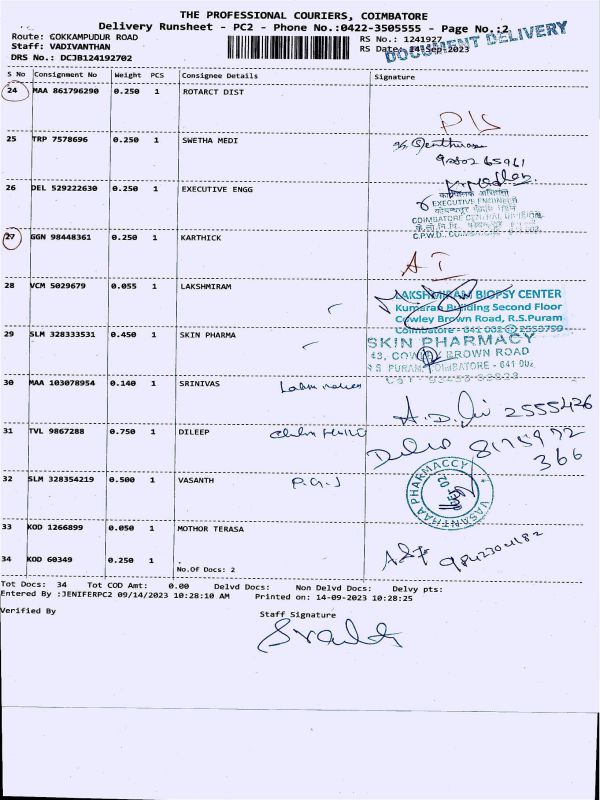 THE PROFESSIONAL COURIERS, COIMBATORE
Delivery Runsheet - PC2 - Phone No.:0422-3505555 - Page No.:2
DOCUMENT DELIVERY
Route: GOKKAMPUDUR ROAD
RS No.: 1241927
Staff: VADIVANTHAN
RS Date: 14-Sep-2023
DRS No.: DCJB124192702
S No Consignment No Weight PCS Consignee Details Signature
24 MAA 861796290 0.250 1 ROTARCT DIST
25 TRP 7578696 0.250 1 SWETHA MEDI
26 DEL 529222630 0.250 1 EXECUTIVE ENGG
EXECUTIVE ENGINEER
COIMBATORE CENTRAL DIVISION
27 GGN 98448361 0.250 1 KARTHICK
28 VCM 5029679 0.055 1 LAKSHMIRAM
LAKSHMIRAM BIOPSY CENTER
Kumaran Building Second Floor
Cowley Brown Road, R.S.Puram
29 SLM 328333531 0.450 1 SKIN PHARMA
SKIN PHARMACY
43, COWLEY BROWN ROAD
R S PURAM, COIMBATORE - 641 002
30 MAA 103078954 0.140 1 SRINIVAS
2555426
31 TVL 9867288 0.750 1 DILEEP
32 SLM 328354219 0.500 1 VASANTH
VASANTHAA PHARMACCY
33 KOD 1266899 0.050 1 MOTHOR TERASA
34 KOD 60349 0.250 1 .
No.Of Docs: 2
Tot Docs: 34 Tot COD Amt: 0.00 Delvd Docs: Non Delvd Docs: Delvy pts:
Entered By :JENIFERPC2 09/14/2023 10:28:10 AM Printed on: 14-09-2023 10:28:25
Verified By Staff Signature